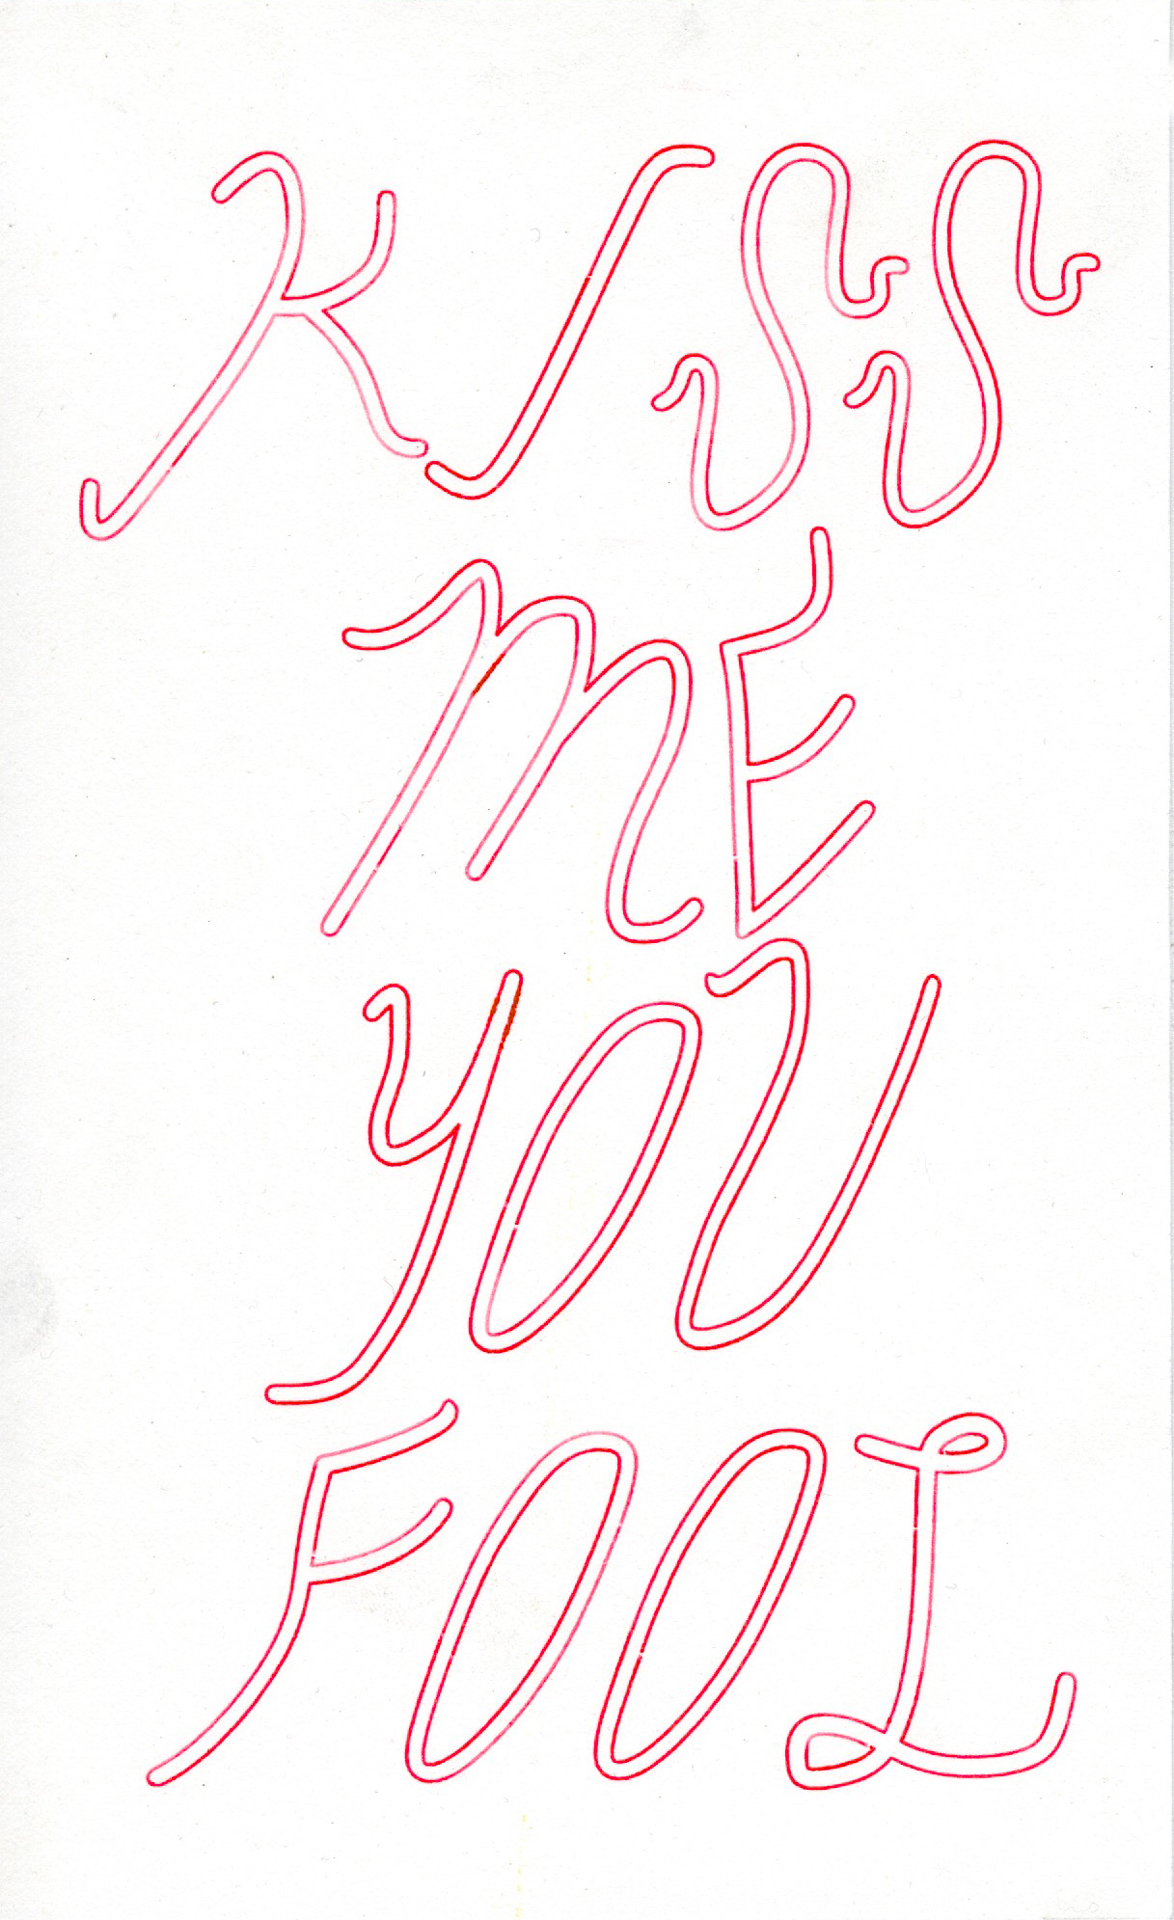 KISS
ME
YOU
FOOL